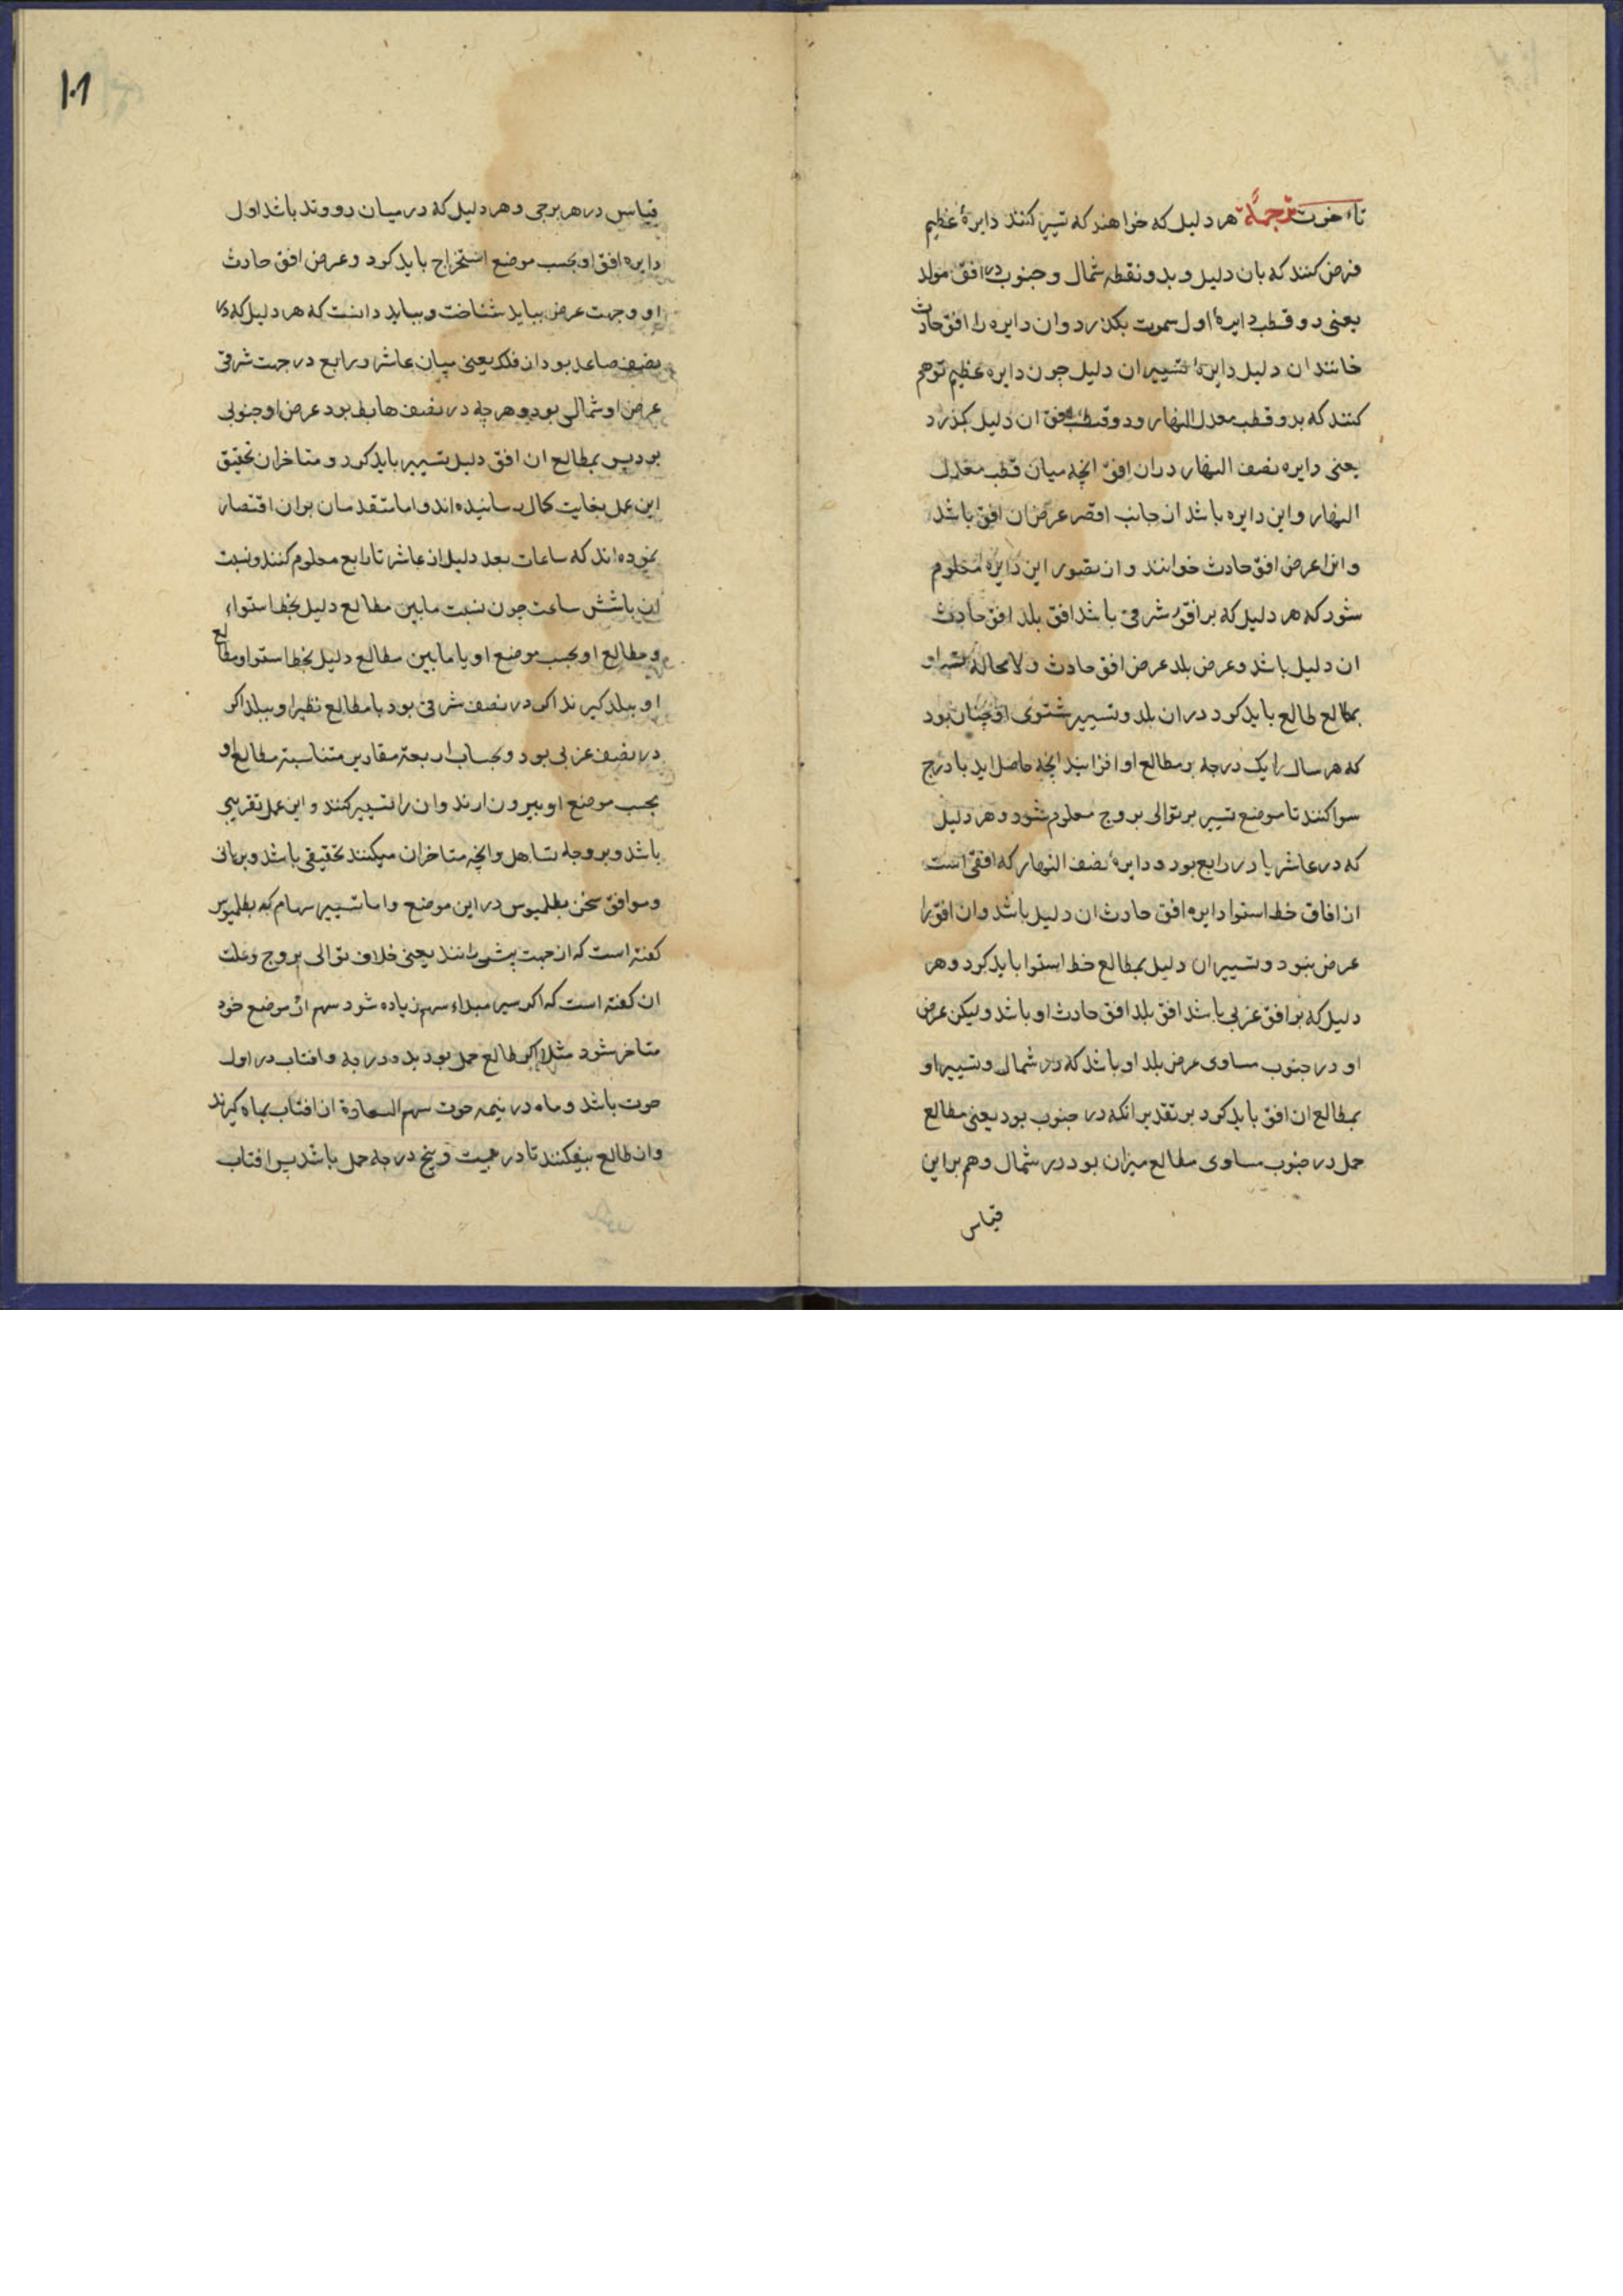 تاخرت ترجمة هر دلیل که خواهند که تسییر کنند دایرهٔ عظیم
فرض کنند که بان دلیل و بدو نقطه شمال و جنوب در افق مولد
یعنی دو قطب دایرهٔ اول سموت بکذرد وان دایره را افق حادث
خانند ان دلیل دایرهٔ تسییر ان دلیل جون دایره عظیم توهم
کنند که بدو قطب معدل النهار ودو قطب افق ان دلیل بکذرد
یعنی دایره نصف النهار دران افق انچه میان قطب معدل
النهار واین دایره باشد از جانب اقصر عرض ان افق باشد
وانرا عرض افق حادث خوانند واز تصور این دایره معلوم
شود که هر دلیل که بر افق شرقی باشد افق بلد افق حادث
ان دلیل باشد وعرض بلد عرض افق حادث ولا محاله او
بمطالع طالع باید کرد دران بلد وتسییر مستوی او چنان بود
که هر سال را یک درجه بر مطالع او افزایند انچه حاصل اید با درج
سوا کنند تا موضع تسییر بر توالی بروج معلوم شود و هر دلیل
که در عاشر یا در رابع بود ودایرهٔ نصف النهار که افقی است
از افاق خط استوا دایره افق حادث ان دلیل باشد وان افق را
عرض نبود وتسییر ان دلیل بمطالع خط استوا باید کرد وهر
دلیل که بر افق غربی باشد افق بلد افق حادث او باشد ولیکن عرض
او در جنوب مساوی عرض بلد او باشد که در شمال وتسییر او
بمطالع ان افق باید کرد بر تقدیر انکه در جنوب بود یعنی مطالع
حمل در جنوب مساوی مطالع میزان بود در شمال وهم براین
قیاس
۱۰۱
قیاس در هر برجی وهر دلیل که در میان دو وتد باشد اول
دایره افق او بحسب موضع استخراج باید کرد وعرض افق حادث
او وجهت عرض بباید شناخت وبباید دانست که هر دلیل که در
نصف صاعد بود از فلک یعنی میان عاشر ورابع در جهت شرقی
عرض او شمالی بود وهر چه در نصف هابط بود عرض او جنوبی
بود پس بمطالع ان افق دلیل تسییر باید کرد ومتاخران تحقیق
این عمل بغایت کمال رسانیده اند واما متقدمان بران اقتصار
نموده اند که ساعات بعد دلیل از عاشر تا رابع معلوم کنند ونسبت
ان باشش ساعت چون نسبت مابین مطالع دلیل بخط استواء
ومطالع او بحسب موضع او با مابین مطالع دلیل بخط استوا ومطالع
او ببلد کیرند اکر در نصف شرقی بود با مطالع نظیر او ببلد اکر
در نصف غربی بود وبحساب اربعة مقادیر متناسبة مطالع او
بحسب موضع او بیرون ارند وان را تسییر کنند واین عمل تقریبی
باشد وبر وجه تساهل وانچه متاخران میکنند تحقیقی باشد وبرهانی
وموافق سخن بطلمیوس در این موضع واما تسییر سهام که بطلمیوس
کفته است که از جهت پیشی رانند یعنی خلاف توالی بروج وعلت
ان کفته است که اکر سیر مبداء سهم زیاده شود سهم از موضع خود
متاخر شود مثلا اکر طالع حمل بود بده درجه وافتاب در اول
حوت باشد وماه در نیمه حوت سهم السعادة از افتاب بماه کیرند
واز طالع بیفکنند تا در بیست وپنج درجه حمل باشد پس افتاب